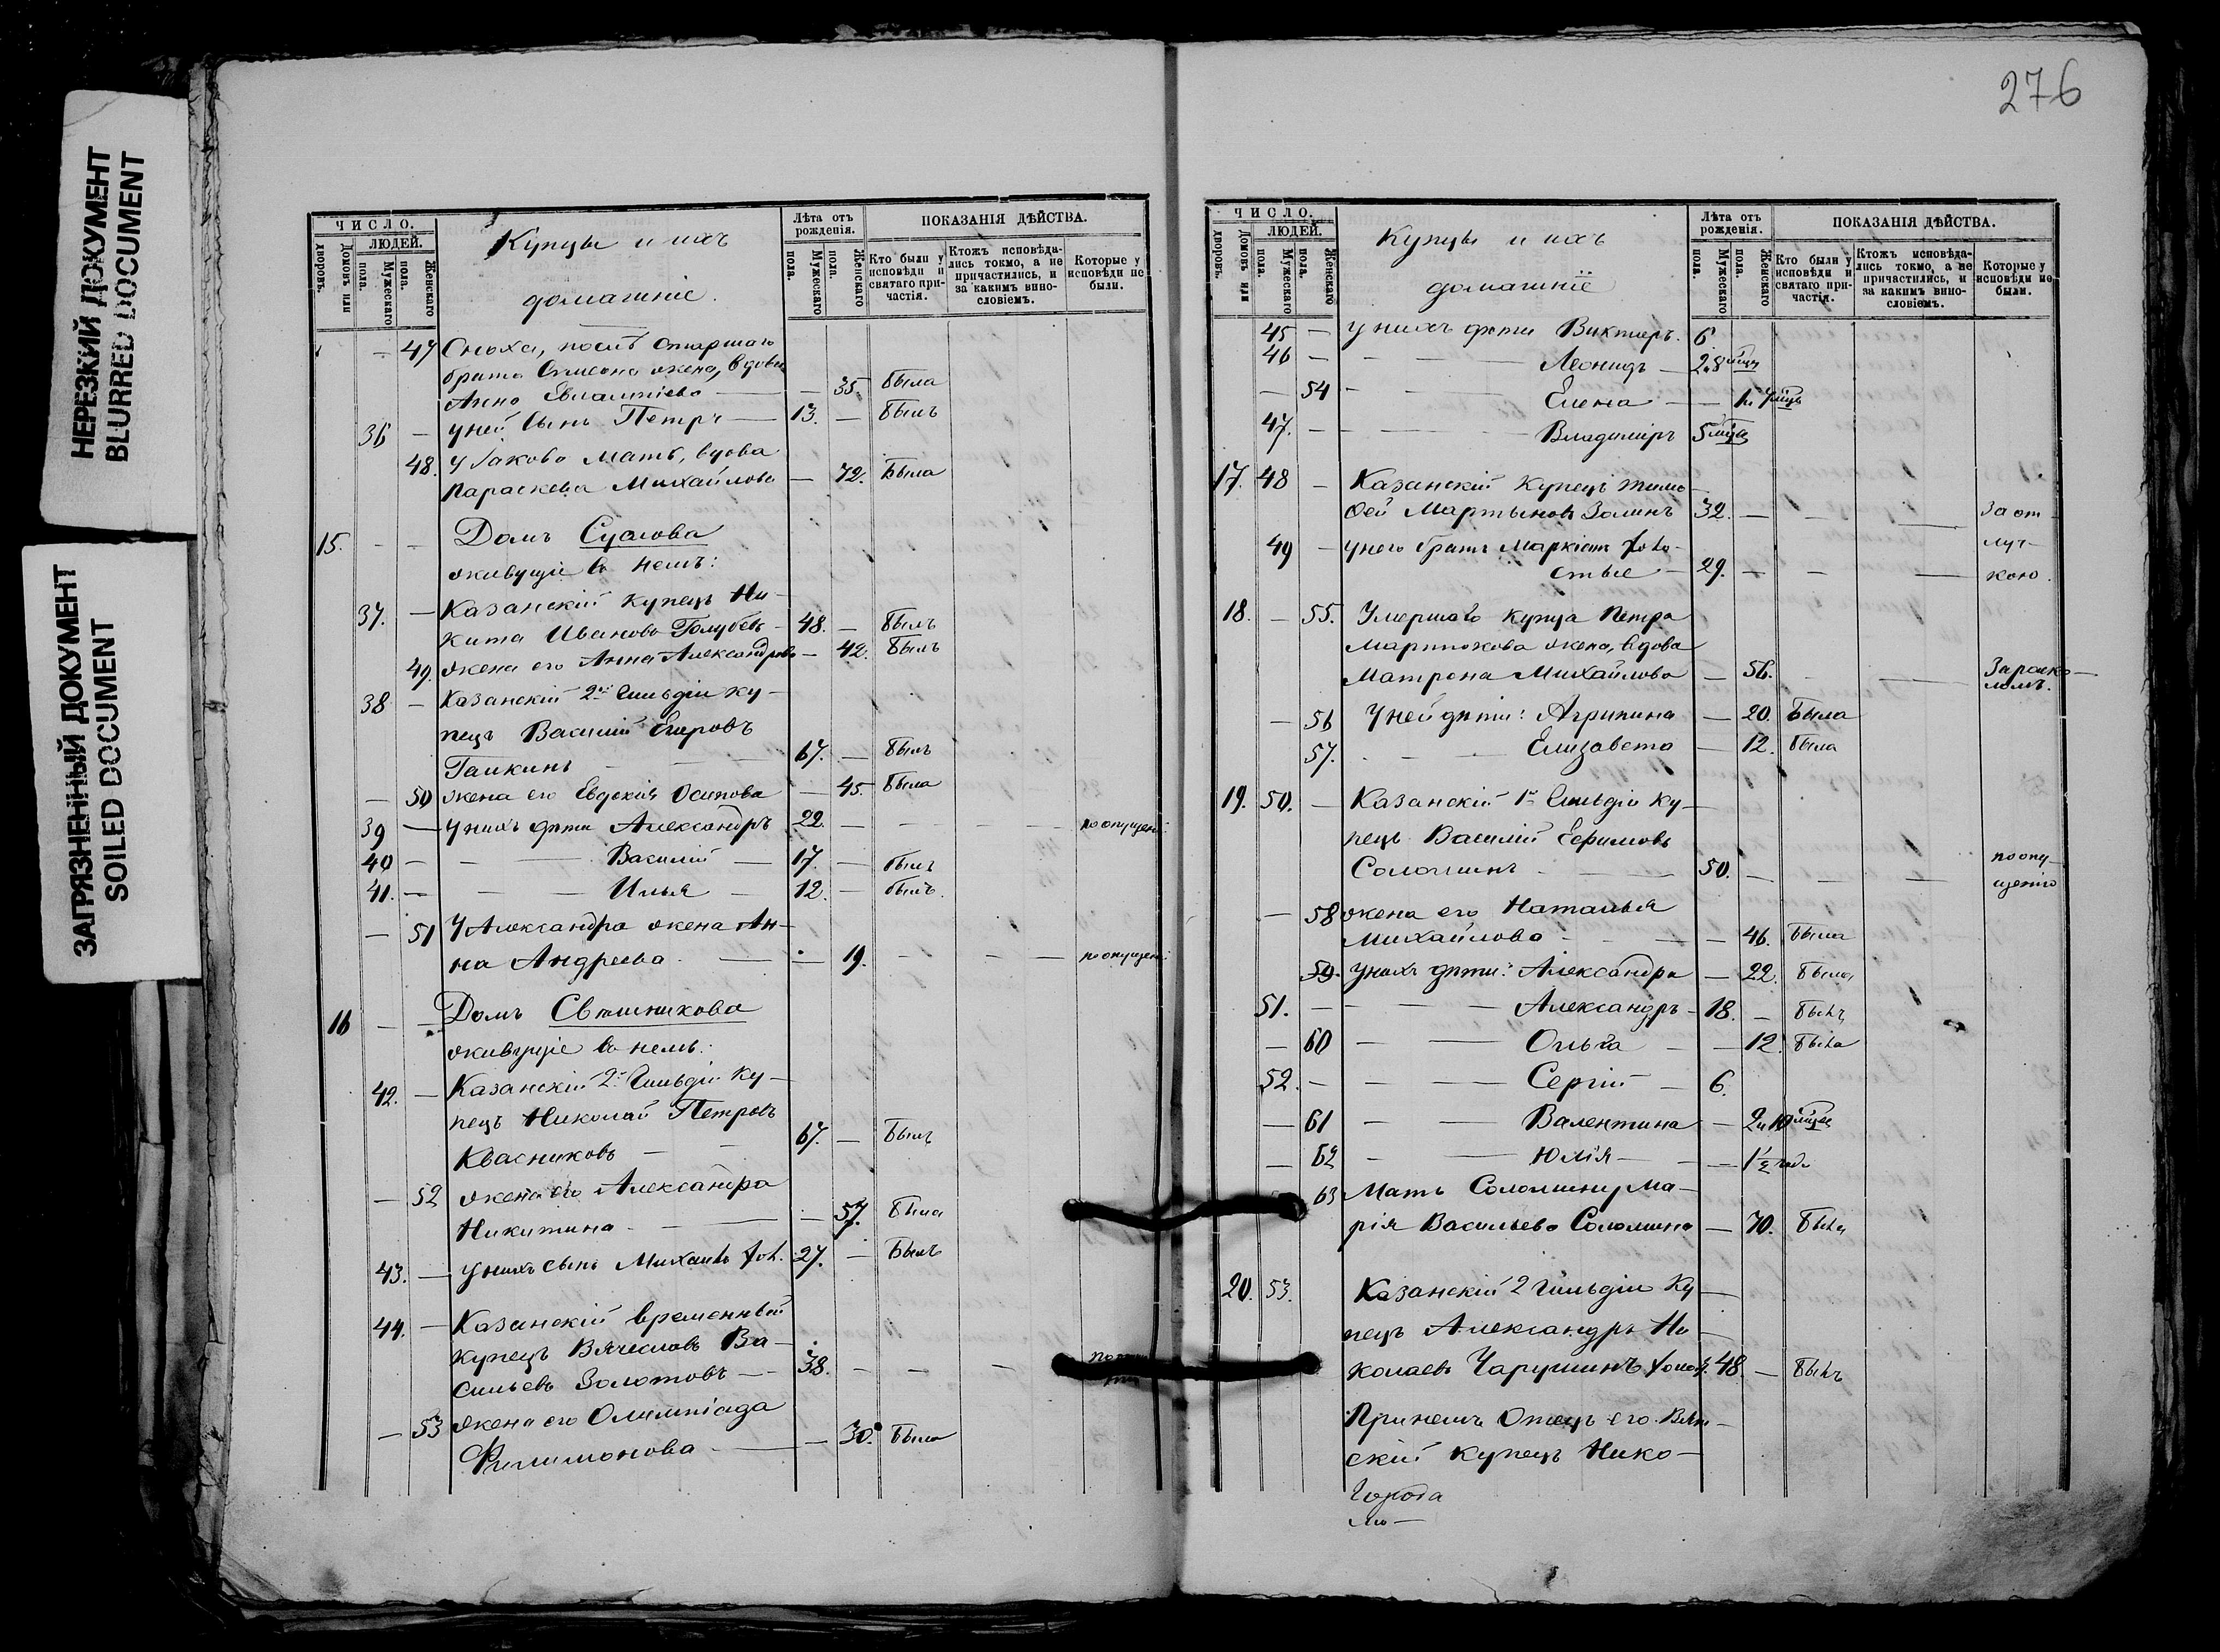 НЕРЕЗКИЙ ДОКУМЕНТ
BLURRED DOCUMENT
ЗАГРЯЗНЕННЫЙ ДОКУМЕНТ
SOILED DOCUMENT
ЧИСЛО.
ЛЮДЕЙ.
дворовъ.
Домовъ или
Мужескаго пола.
Женскаго пола.
Купцы и ихъ
домашніе.
Лѣта отъ рожденія.
Мужескаго пола.
Женскаго
ПОКАЗАНІЯ ДѢЙСТВА.
Кто были у исповѣди и святаго причастія.
Ктожъ исповѣдались токмо, а не причастились, и за какимъ винословіемъ.
Которые у исповѣди не были.
— 47 Сноха, послѣ старшаго
брата жена, вдова
Анна — 35. была
36 — у ней сынъ Петръ — 13. — былъ
48. У Іакова мать, вдова
Параскева Михайлова — 72. Была
15. — — Домъ Суслова
живущіе въ немъ:
37. — Казанскій купецъ Ни-
кита Ивановъ Голубевъ 48. — былъ
49. жена его Анна Александрова — 42. былъ
38 — Казанскій 2й гильдіи ку-
пецъ Василій Егоровъ
67. — былъ
— 50 жена его Евдокія Осипова — 45. была
39 — у нихъ дѣти Александръ 22. — — — по опущен.
40 — — — Василій — 17. — былъ
41. — — — Илья — 12. — былъ.
— 51 У Александра жена Ан-
на Андреева — — 19. — — — по опущен.
16 — — Домъ Свѣшникова
живущіе въ немъ:
42. — Казанскій 2й гильдіи ку-
пецъ Николай Петровъ
Квасниковъ — — 67. — былъ
— 52 жена его Александра
Никитина — — — 57. была
43. — у нихъ сынъ Михаилъ хол. 27. — Былъ
44. — Казанскій временный
купецъ Вячеславъ Ва-
сильевъ Золотовъ — 38. — — —
— 53 жена его Олимпіада
Филимонова — — 30. была
276
ЧИСЛО.
ЛЮДЕЙ.
дворовъ.
Домовъ или
Мужескаго пола.
Женскаго пола.
Купцы и ихъ
домашніе
Лѣта отъ рожденія.
Мужескаго пола.
Женскаго пола.
ПОКАЗАНІЯ ДѢЙСТВА.
Кто были у исповѣди и святаго причастія.
Ктожъ исповѣдались токмо, а не причастились, и за какимъ винословіемъ.
Которые у исповѣди не были.
45 — у нихъ дѣти Викторъ. 6
46 — — — Леонидъ — 2 и 8 мцъ
— 54 — — Елена — — 1 и 7 мцъ
47. — — — Владиміръ 5 мцъ
17. 48 — Казанскій купецъ Тимо-
ѳей Мартыновъ 32. — — — За от-
49 — у него братъ Маркіанъ холо- луч-
стые — 29. — — — кою.
18. — 55. Умершаго купца Петра
жена, вдова
Матрона Михайлова — 56. — — За раско-
ломъ.
— 56 У ней дѣти: Агрипина — 20. Была
57. — — Елизавета — 12. была
19. 50. — Казанскій 1й гильдіи ку-
пецъ Василій Ефимовъ
Соломинъ — — 50. — — — по опу-
щенію
— 58 жена его Наталья
Михайлова — — — 46. была
59. у нихъ дѣти: Александра — 22. была
51. — — — Александръ — 18. — былъ
— 60 — — Ольга — — 12. была
52. — — — Сергій — 6.
— 61 — — Валентина — 2 и 10 мцъ
— 62 — — Юлія — — 1½ года
63 Мать Соломины, Ма-
рія Васильева Соломина — 70. была
20. 53. Казанскій 2 гильдіи ку-
пецъ Александръ Ни-
колаевъ Чарушинъ холос. 48. — былъ
При немъ отецъ его. Вят-
скій купецъ Нико-